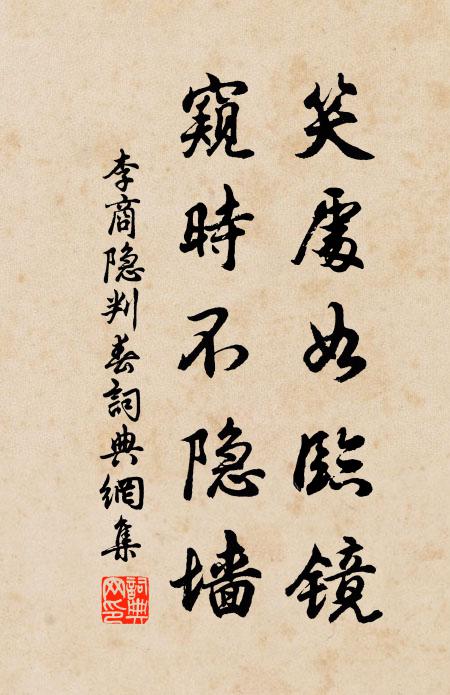 笑處如臨镜
窺時不隐墙
李商隐判春詞典網集
詞典网印